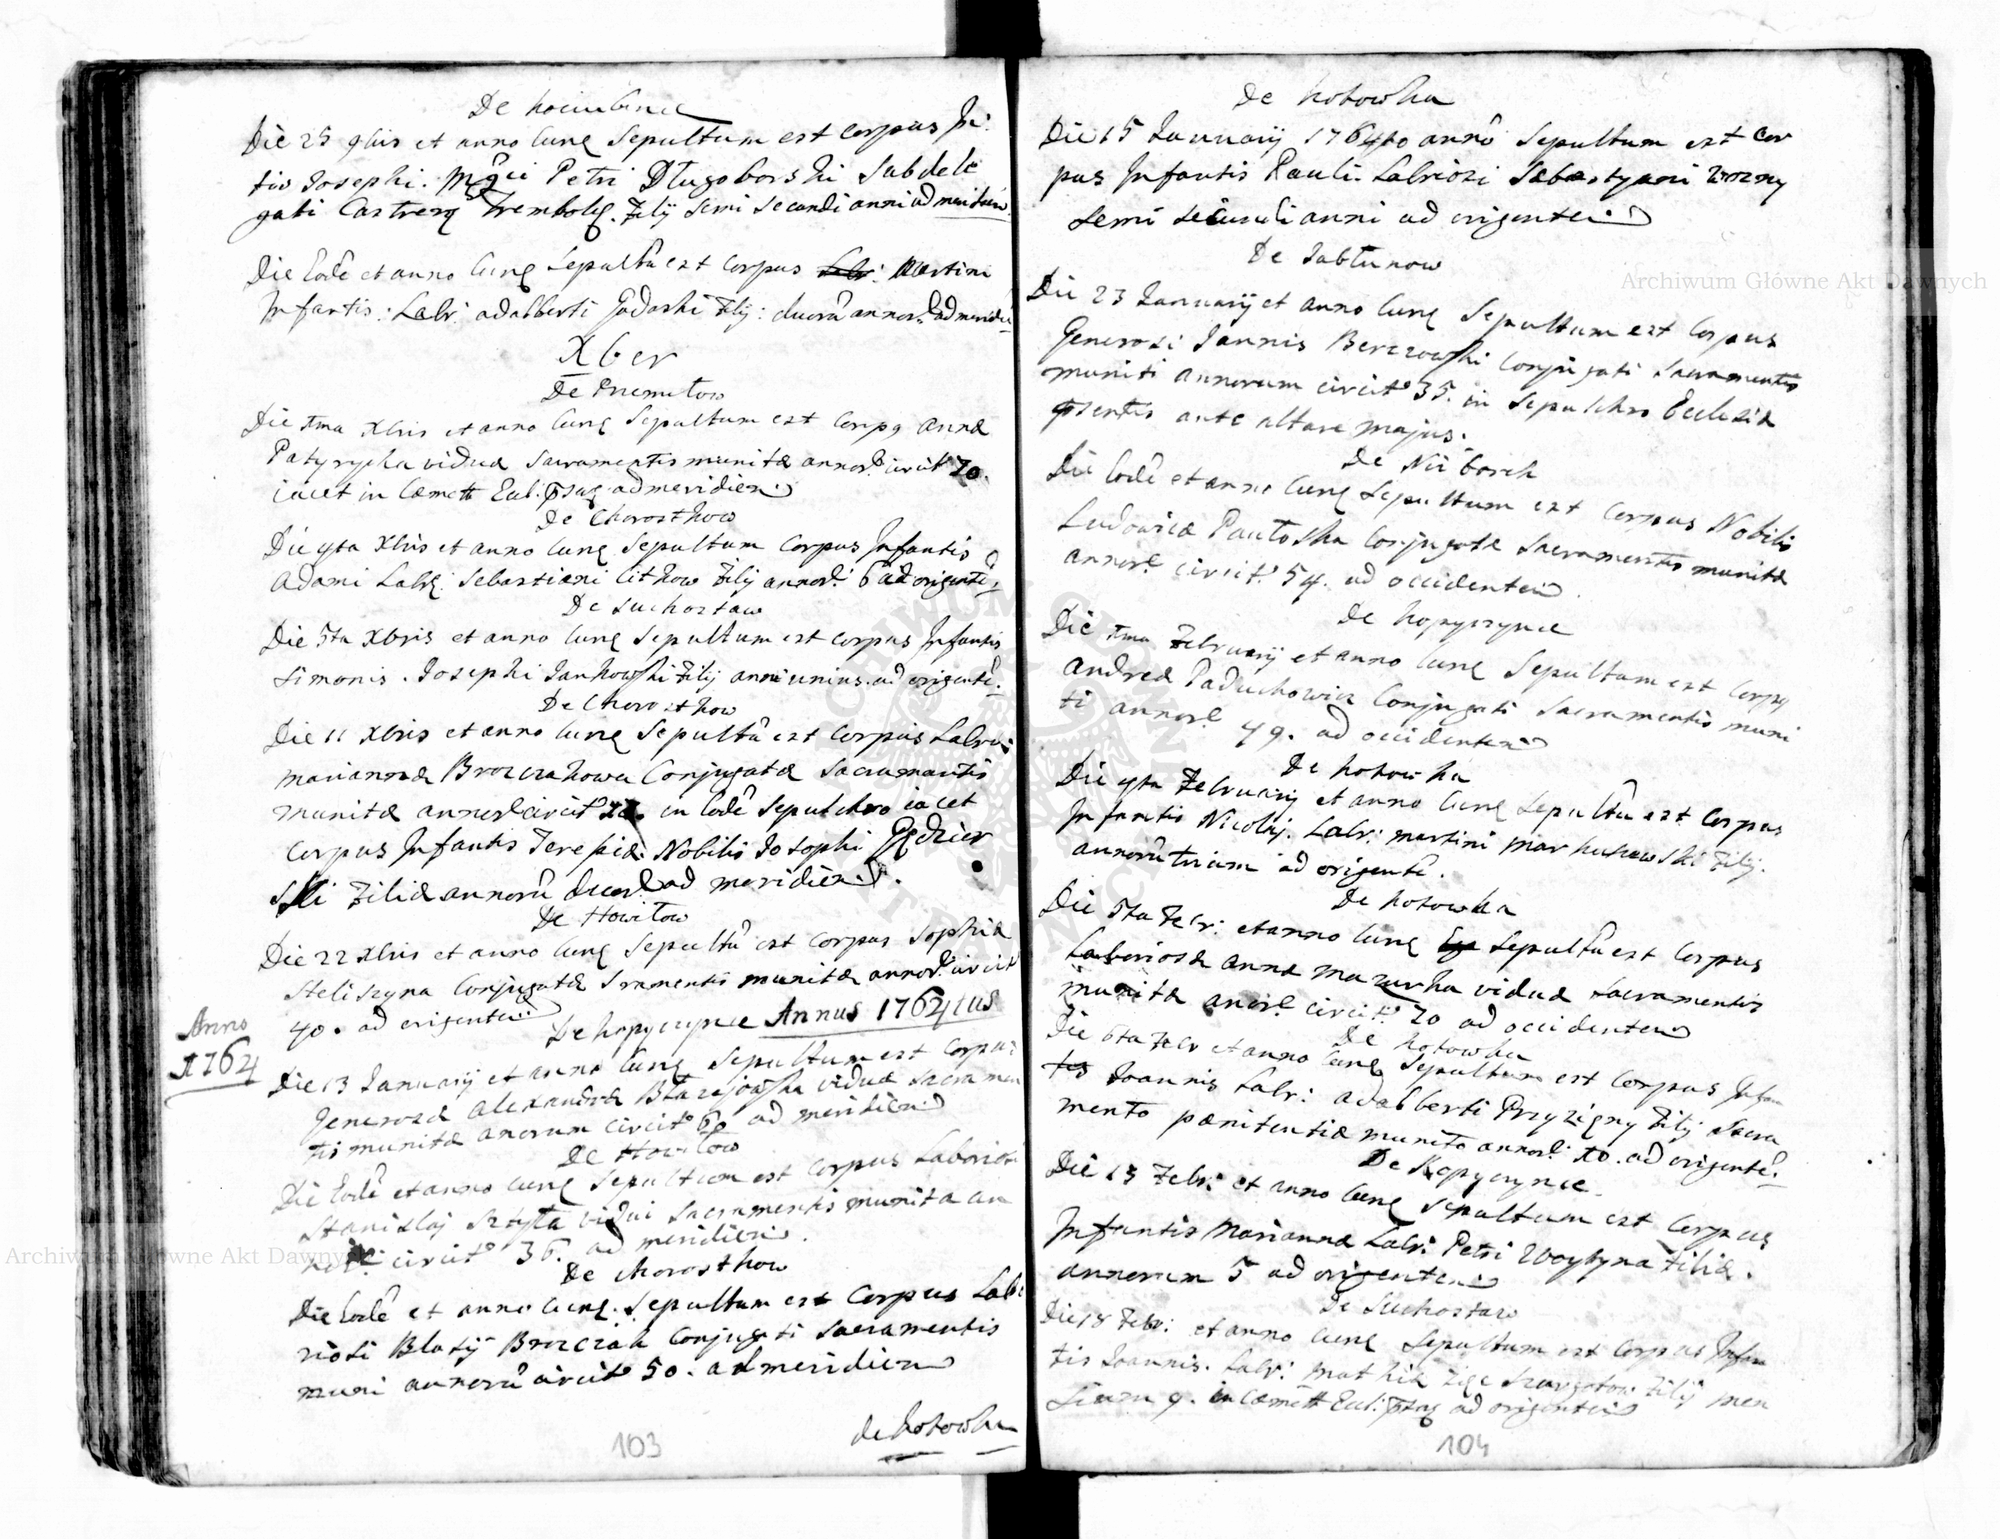 De
Die 25 9bris et anno eunq Sepultum est Corpus In:
tis Josephi. Petri Długoborski Subdele
gati Castren Trembolę. Filij semi secundi anni ad meridiem
Die Eodē et anno eunq Sepultū est Corpus Martini
Infantis: Labr: adalberti Gadoski Filij: duorū annor. ad meridie
Xber
De
Die 1ma Xbris et anno eunq Sepultum est Corpq Annæ
viduæ Sacramentis munitæ annor. circit 70.
iacet in Cæmett Eccl. ad meridiem
De Chorosthow
Die 4ta Xbris et anno eunq Sepultum Corpus Infantis
Adami Labr. Sebastiani Lithow Filij annor. 6 ad origentē
De Suchostaw
Die 5ta Xbris et anno eunq Sepultum est Corpus Infantis
Simonis. Josephi Jankowski Filij anni unius. ad origentē.
De Chorosthow
Die 11 Xbris et anno eunq Sepultū est Corpus Labrio
mariannæ Brozczakowa Conjugatæ Sacramentis
munitæ annor circit in Eodē Sepulchro iacet
Corpus Infantis Teresiæ. Nobilis Josephi Gędzier
ski Filiæ annorū duor. ad meridiem.
De Howiłow
Die 22 Xbris et anno eunq Sepultū est Corpus Sophiæ
Steliszyna Conjugatæ Sramentis munitæ annor. circit
40. ad origentem
De kopyczynce Annus 1764tus
Anno
1764
Die 13 Januarij et anno eunq Sepultum est Corpus
Generosæ Alexandræ Błazejowska viduæ Sacramen
tis munitæ anorum circitº 60 ad meridiem
De Howiłow
Die Eodē et anno eunq Sepultum est Corpus Laborios
Stanislaj Sztyła vidui Sacramentis munita an
nor. circitº 36. ad meridiem.
De Chorosthow
Die Eodē et anno eunq. Sepultum est Corpus Lab:
riosi Blasij Brozczak Conjugati Sacramentis
muni annorū circitº 50. ad meridiem
de kotowka
103
De kotowka
Die 15 Januarij 1764to annō Sepultum est Cor
pus Infantis Pauli. Labriosi Sebastyani Wozny
semi secundi anni ad origentem
De Jabłunow
Die 23 Januarij et anno eunq Sepultum est Corpus
Generosi Jannis Berezowski Conjugati Sacramentis
muniti annorum circitº 35. in Sepulchro Ecclesiæ
psentis ante altare majus.
De Niżborch
Die Eodē et anno eunq Sepultum est Corpus Nobilis
Ludowicæ Pautoska Conjugatæ Sacramentis munitæ
annor. circitº 54. ad occidentem
De kopyczynce
Die 1ma Februarij et anno eunq Sepultum est Corpq
Andreæ Paduchowicz Conjugati Sacramentis muni
ti annor. 49. ad occidentem
De kotowka
Die 4ta Februarij et anno eunq Sepultū est Corpus
Infantis Nicolaj. Labr: martini Markukowski Filij.
annorū trium ad origentē.
De kotowka
Die 5ta Febr: et anno eunq Sepultū est Corpus
Laboriosæ annæ mazurka viduæ Sacramentis
munitæ anor. circitº 70 ad occidentem
De kotowka
Die 6ta Febr et anno eunq Sepultum est Corpus Infan
tis Joannis Labr: adalberti Przyziezny Filij Sacra
mento pænitentiæ munito annor. 10. ad origentē.
De Kopyczynce
Die 13 Febr: et anno eunq Sepultum est Corpus
Infantis Mariannæ Labr: Petri Woytyna Filiæ.
annorum 5 ad origentem
De Suchostaw
Die 18 Febr: et anno eunq Sepultum est Corpus Infan
tis Joannis. Labr: mathiæ Filij men
sium 9. in Cæmett Eccl: ad origentem
104
Archiwum Główne Akt Dawnych
Archiwum Główne Akt Dawnych